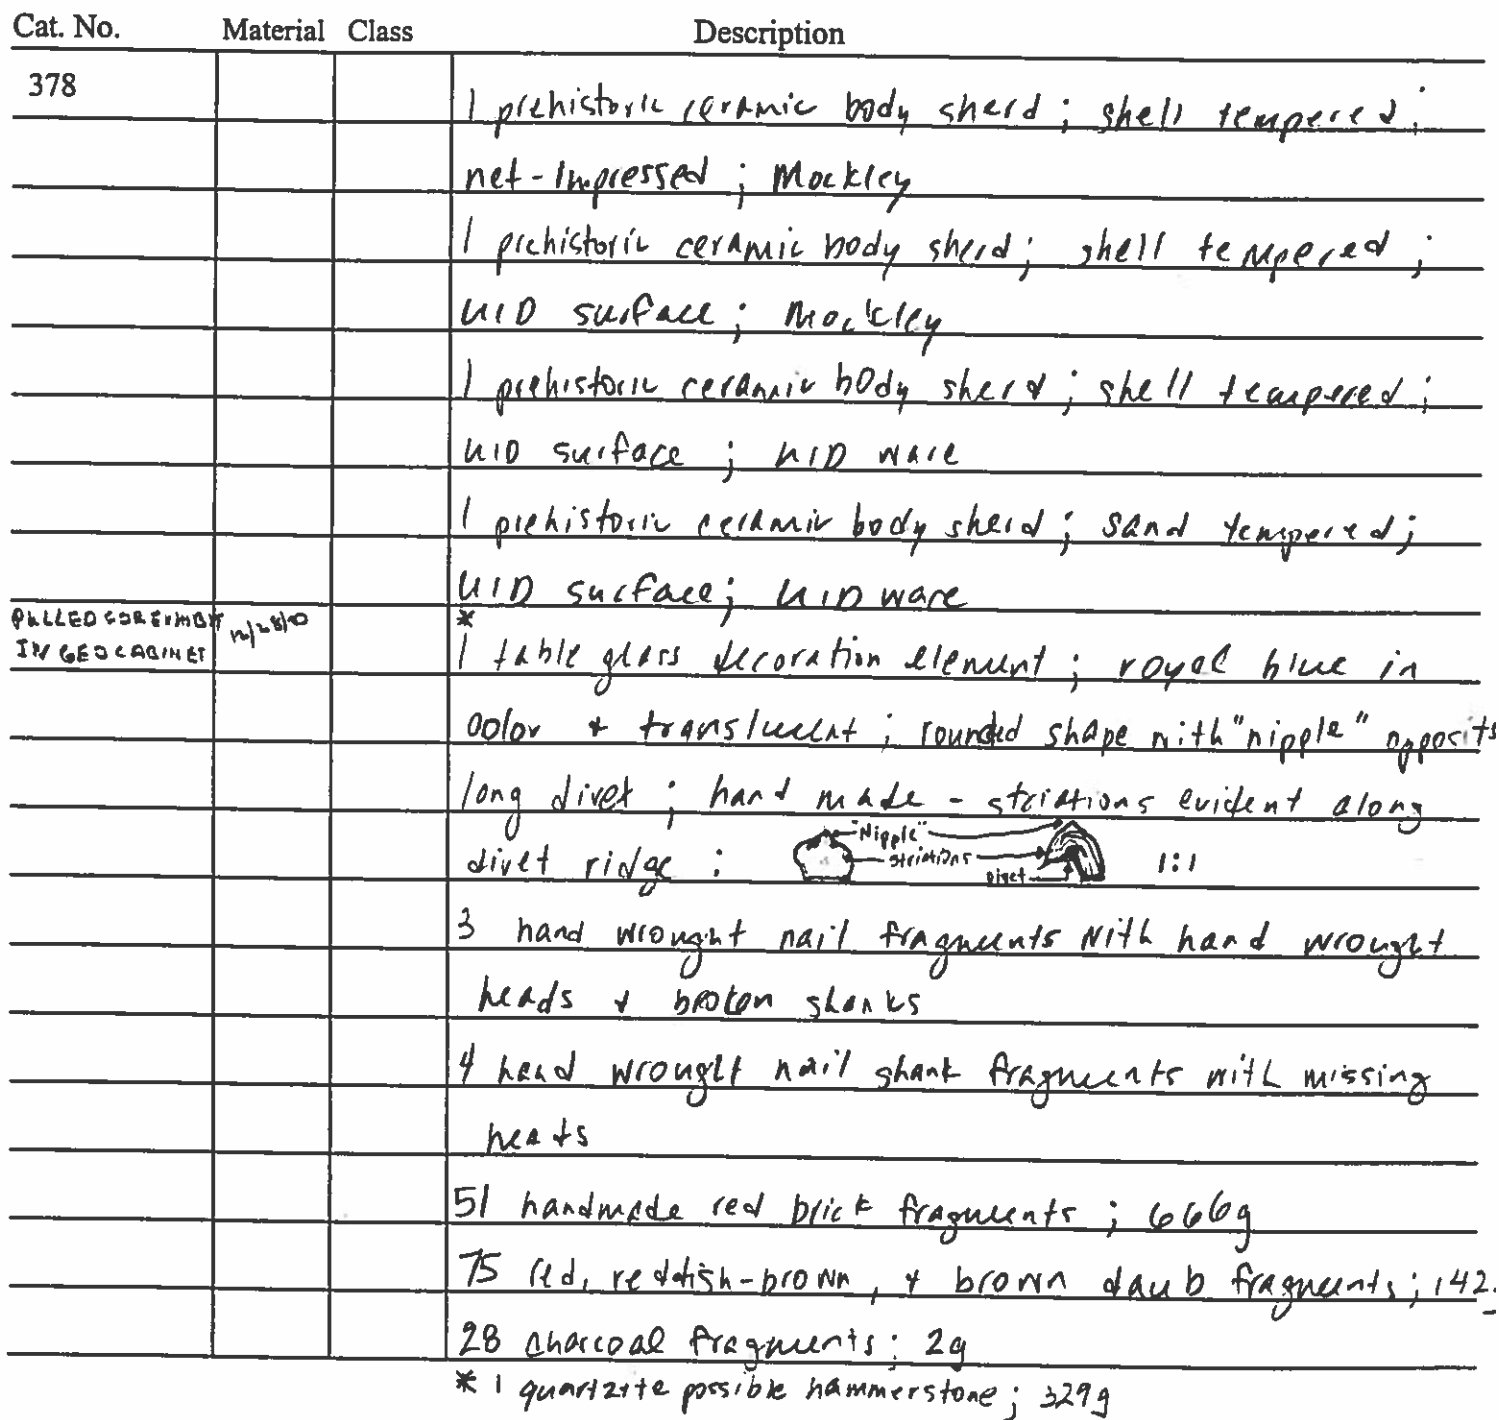 Cat. No. Material Class Description
378
1 prehistoric ceramic body sherd ; shell tempered ;
net-Impressed ; Mockley
1 prehistoric ceramic body sherd ; shell tempered ;
UID surface ; Mockley
1 prehistoric ceramic body sherd ; shell tempered ;
UID surface ; UID ware
1 prehistoric ceramic body sherd ; sand tempered ;
UID surface ; UID ware
PULLED FOR EXHIBIT
IN GEO CABINET
*
1 table glass decoration element ; royal blue in
color + translucent ; rounded shape with "nipple" opposite
long divet ; hand made - striations evident along
divet ridge :
"Nipple"
striations
Divet
1:1
3 hand wrought nail fragments with hand wrought
heads + broken shanks
4 hand wrought nail shank fragments with missing
heads
51 handmade red brick fragments ; 666g
75 red, reddish-brown, + brown daub fragments ; 142g
28 charcoal fragments ; 2g
* 1 quartzite possible hammerstone ; 329g